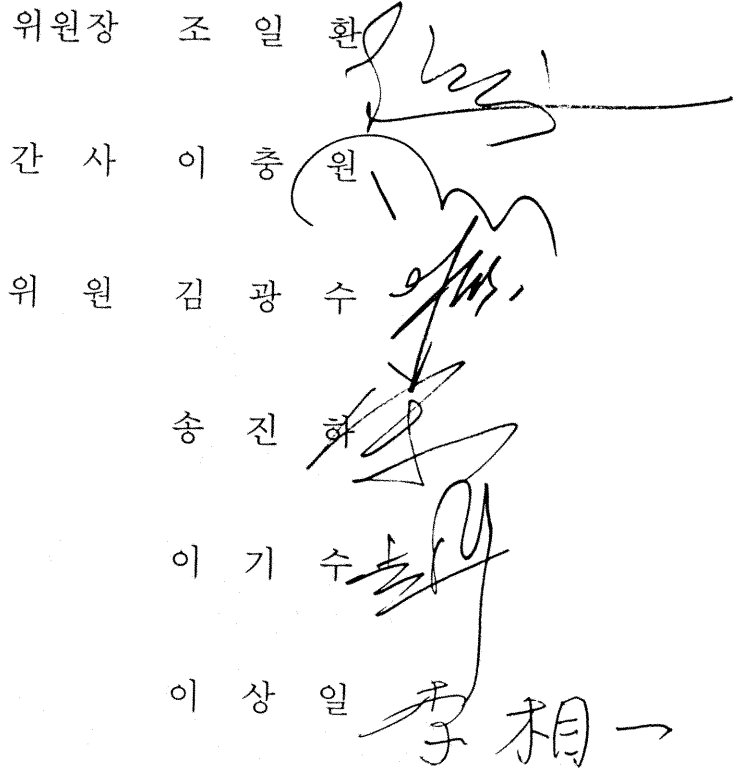 위원장 조 일 환
간 사 이 충 원
위 원 김 광 수
송 진 하
이 기 수
이 상 일 李相一